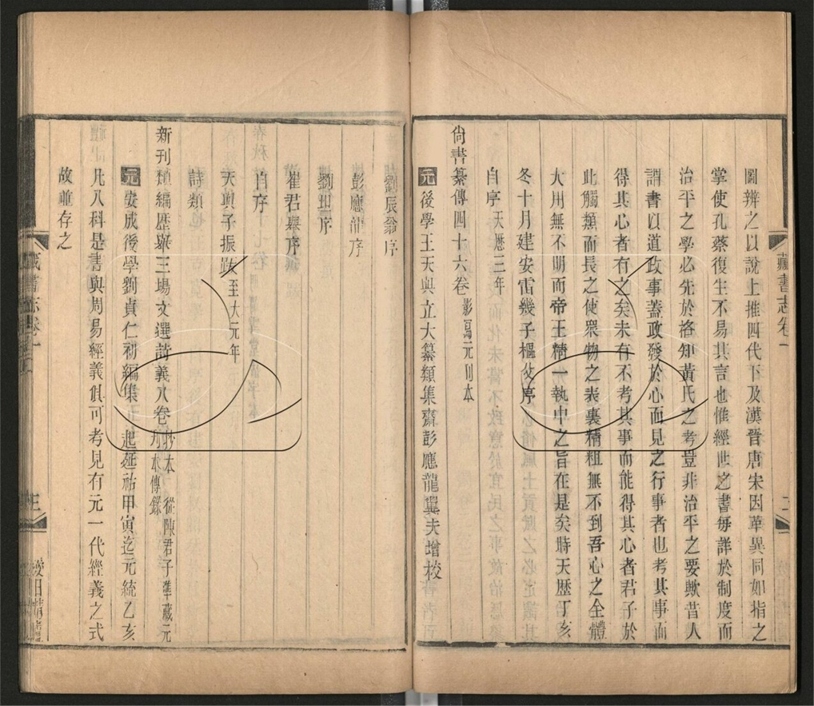 圖辨之以說上推四代下及漢晉唐宋因革異同如指之
掌使孔蔡復生不易其言也惟經世之書每詳於制度而
治平之學必先於格知黃氏之考豈非治平之要歟昔人
謂書以道政事蓋政發於心而見之行事者也考其事而
得其心者有之矣未有不考其事而能得其心者君子於
此觸類而長之使眾物之表裏精粗無不到吾心之全體
大用無不明而帝王精一執中之旨在是矣時天歷丁亥
冬十月建安雷幾子樞父序
自序天歷三年
尙書纂傳四十六卷影寫元刊本
元後學王天與立大纂類集齋彭應龍翼夫增校
劉辰翁序
彭應龍序
劉
序
崔君舉序
自序
天與子振跋至大元年
詩類
新刊類編歷舉三場文選詩義八卷抄本 從陳君子準藏元
刋本傳錄
元安成後學劉貞仁初編集
起延祐甲寅迄元統乙亥
凡八科是書與周易經義俱可考見有元一代經義之式
故並存之
藏書志卷一
藏書志卷一